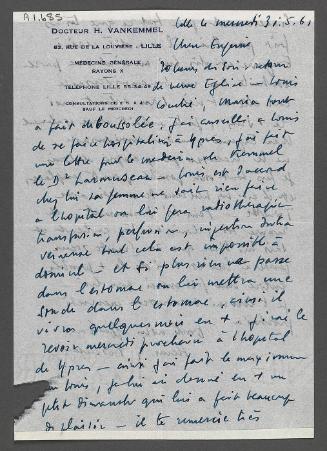 A1.685
DOCTEUR H. VANKEMMEL
82, RUE DE LA LOUVIÈRE - LILLE
MÉDECINE GÉNÉRALE
RAYONS X
TÉLÉPHONE LILLE
CONSULTATIONS DE
SAUF LE MERCREDI
Lille le mercredi 31.5.61
Cher Eugène
20 heures, du soir - retour
de Neuve Eglise - Louis
couché, Maria tout
à fait déboussolée, j'ai conseillé à Louis
de se faire hospitaliser à Ypres, j'ai fait
une lettre pour le médecin de Kemmel
le Dr - Louis est d'accord
chez lui sa femme ne sait rien faire
à l'hopital on lui fera radiothérapie
transfusion, perfusion, injection intra
veineuse tout cela est impossible à
domicile - et si plus rien ne passe
dans l'estomac on lui mettra une
sonde dans l'estomac, ainsi il
vivra quelques mois en +, j'irai le
revoir mercredi prochain à l'hopital
de Ypres - ainsi j'ai fait le maximum
Louis, je lui ai donné en + un
plat dimanche qui lui a fait beaucoup
de plaisir - il te remercie très